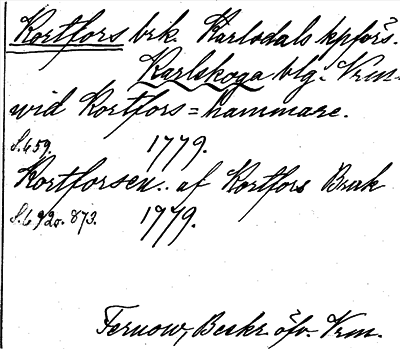 Kortfors brk. Karlsdals kpförs.
Karlskoga blg. Vrm.
wid Kortfors=hammare.
S. 659. 1779.
Kortforsen. af Kortfors Bruk
S. 692o. 873. 1779.
Fernow, Beskr. öfv. Vrm.